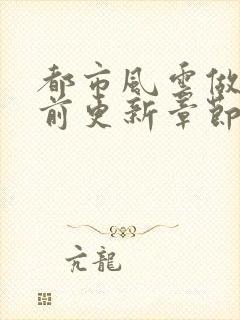 都市風雲做
前更新章節
亢龍